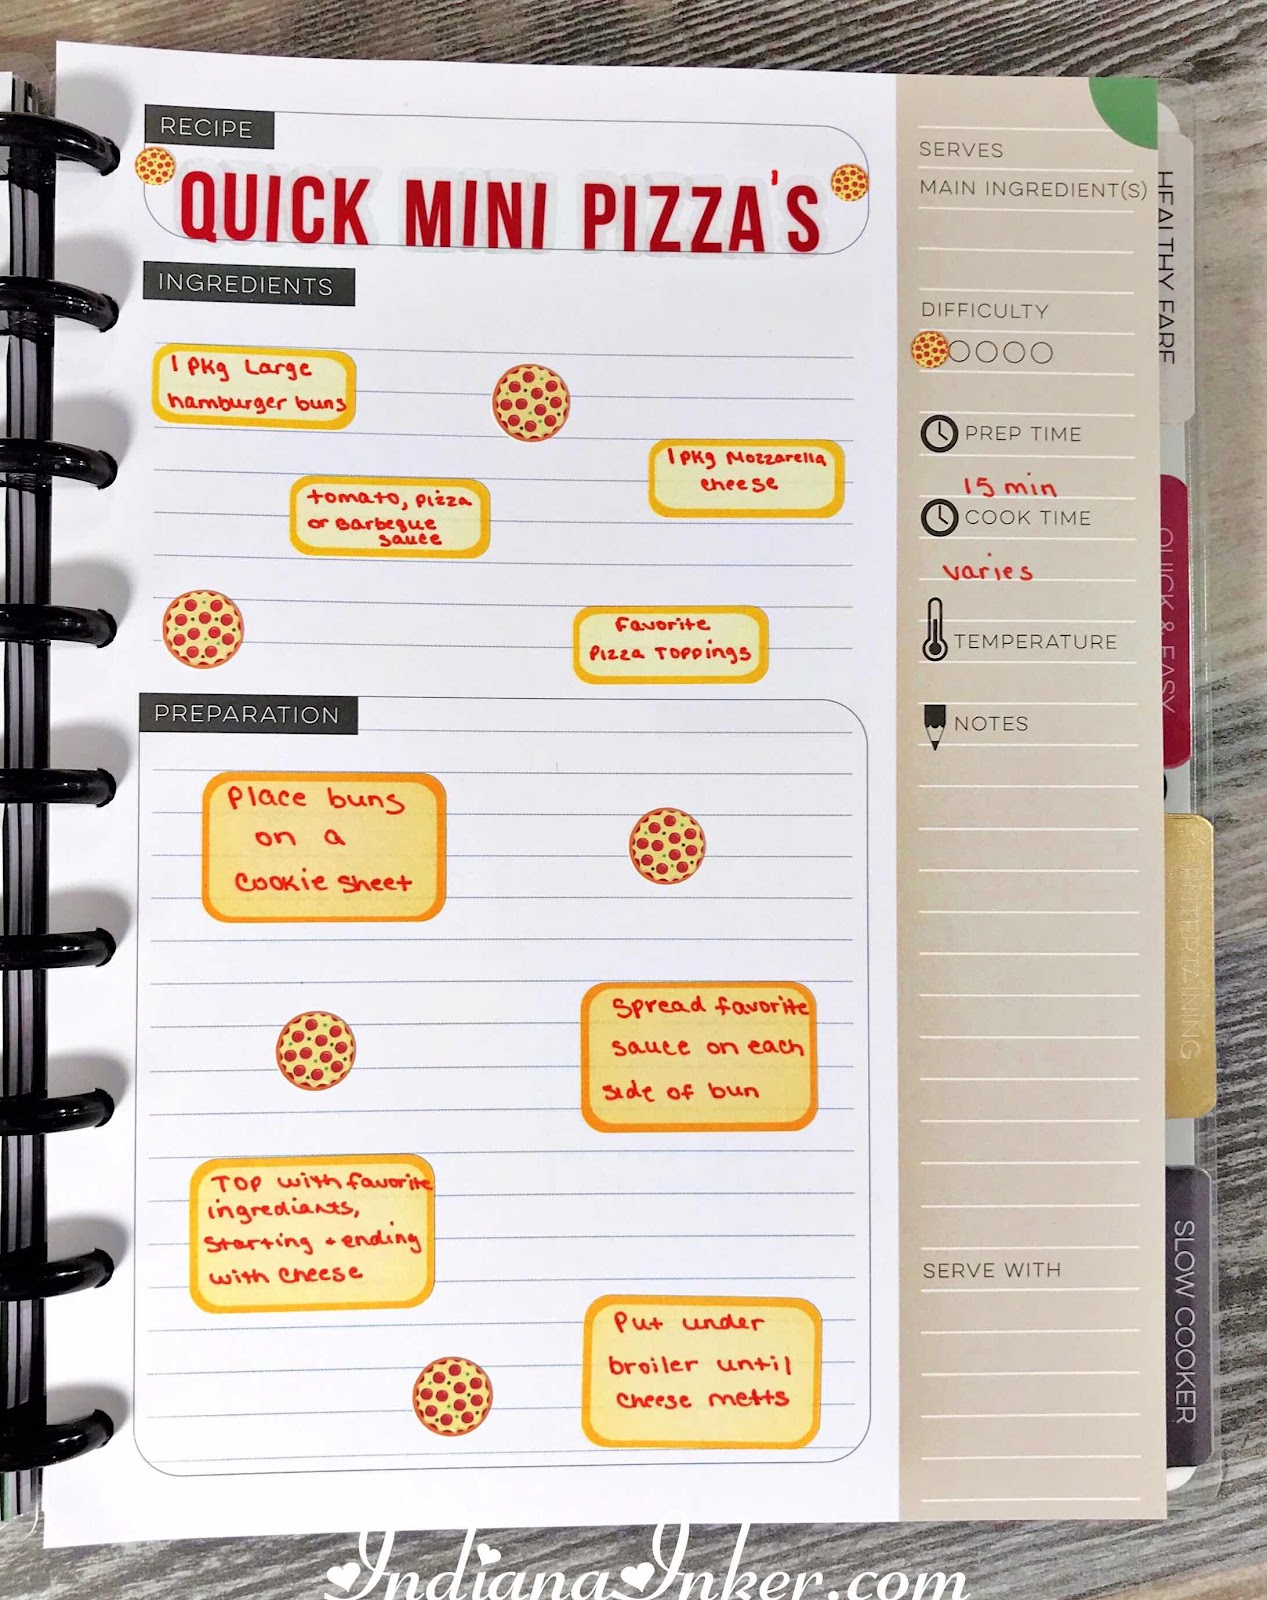 RECIPE
QUICK MINI PIZZA'S
INGREDIENTS
1 PKg Large
hamburger buns
1 PKg Mozzarella
cheese
tomato, pizza
or Barbeque
sauce
Favorite
Pizza Toppings
PREPARATION
Place buns
on a
cookie sheet
Spread favorite
sauce on each
side of bun
Top with favorite
ingrediants,
starting + ending
with cheese
Put under
broiler until
cheese melts
SERVES
MAIN INGREDIENT(S)
DIFFICULTY
PREP TIME
15 min
COOK TIME
varies
TEMPERATURE
NOTES
SERVE WITH
HEALTHY FARE
QUICK & EASY
ENTERTAINING
SLOW COOKER
IndianaInker.com